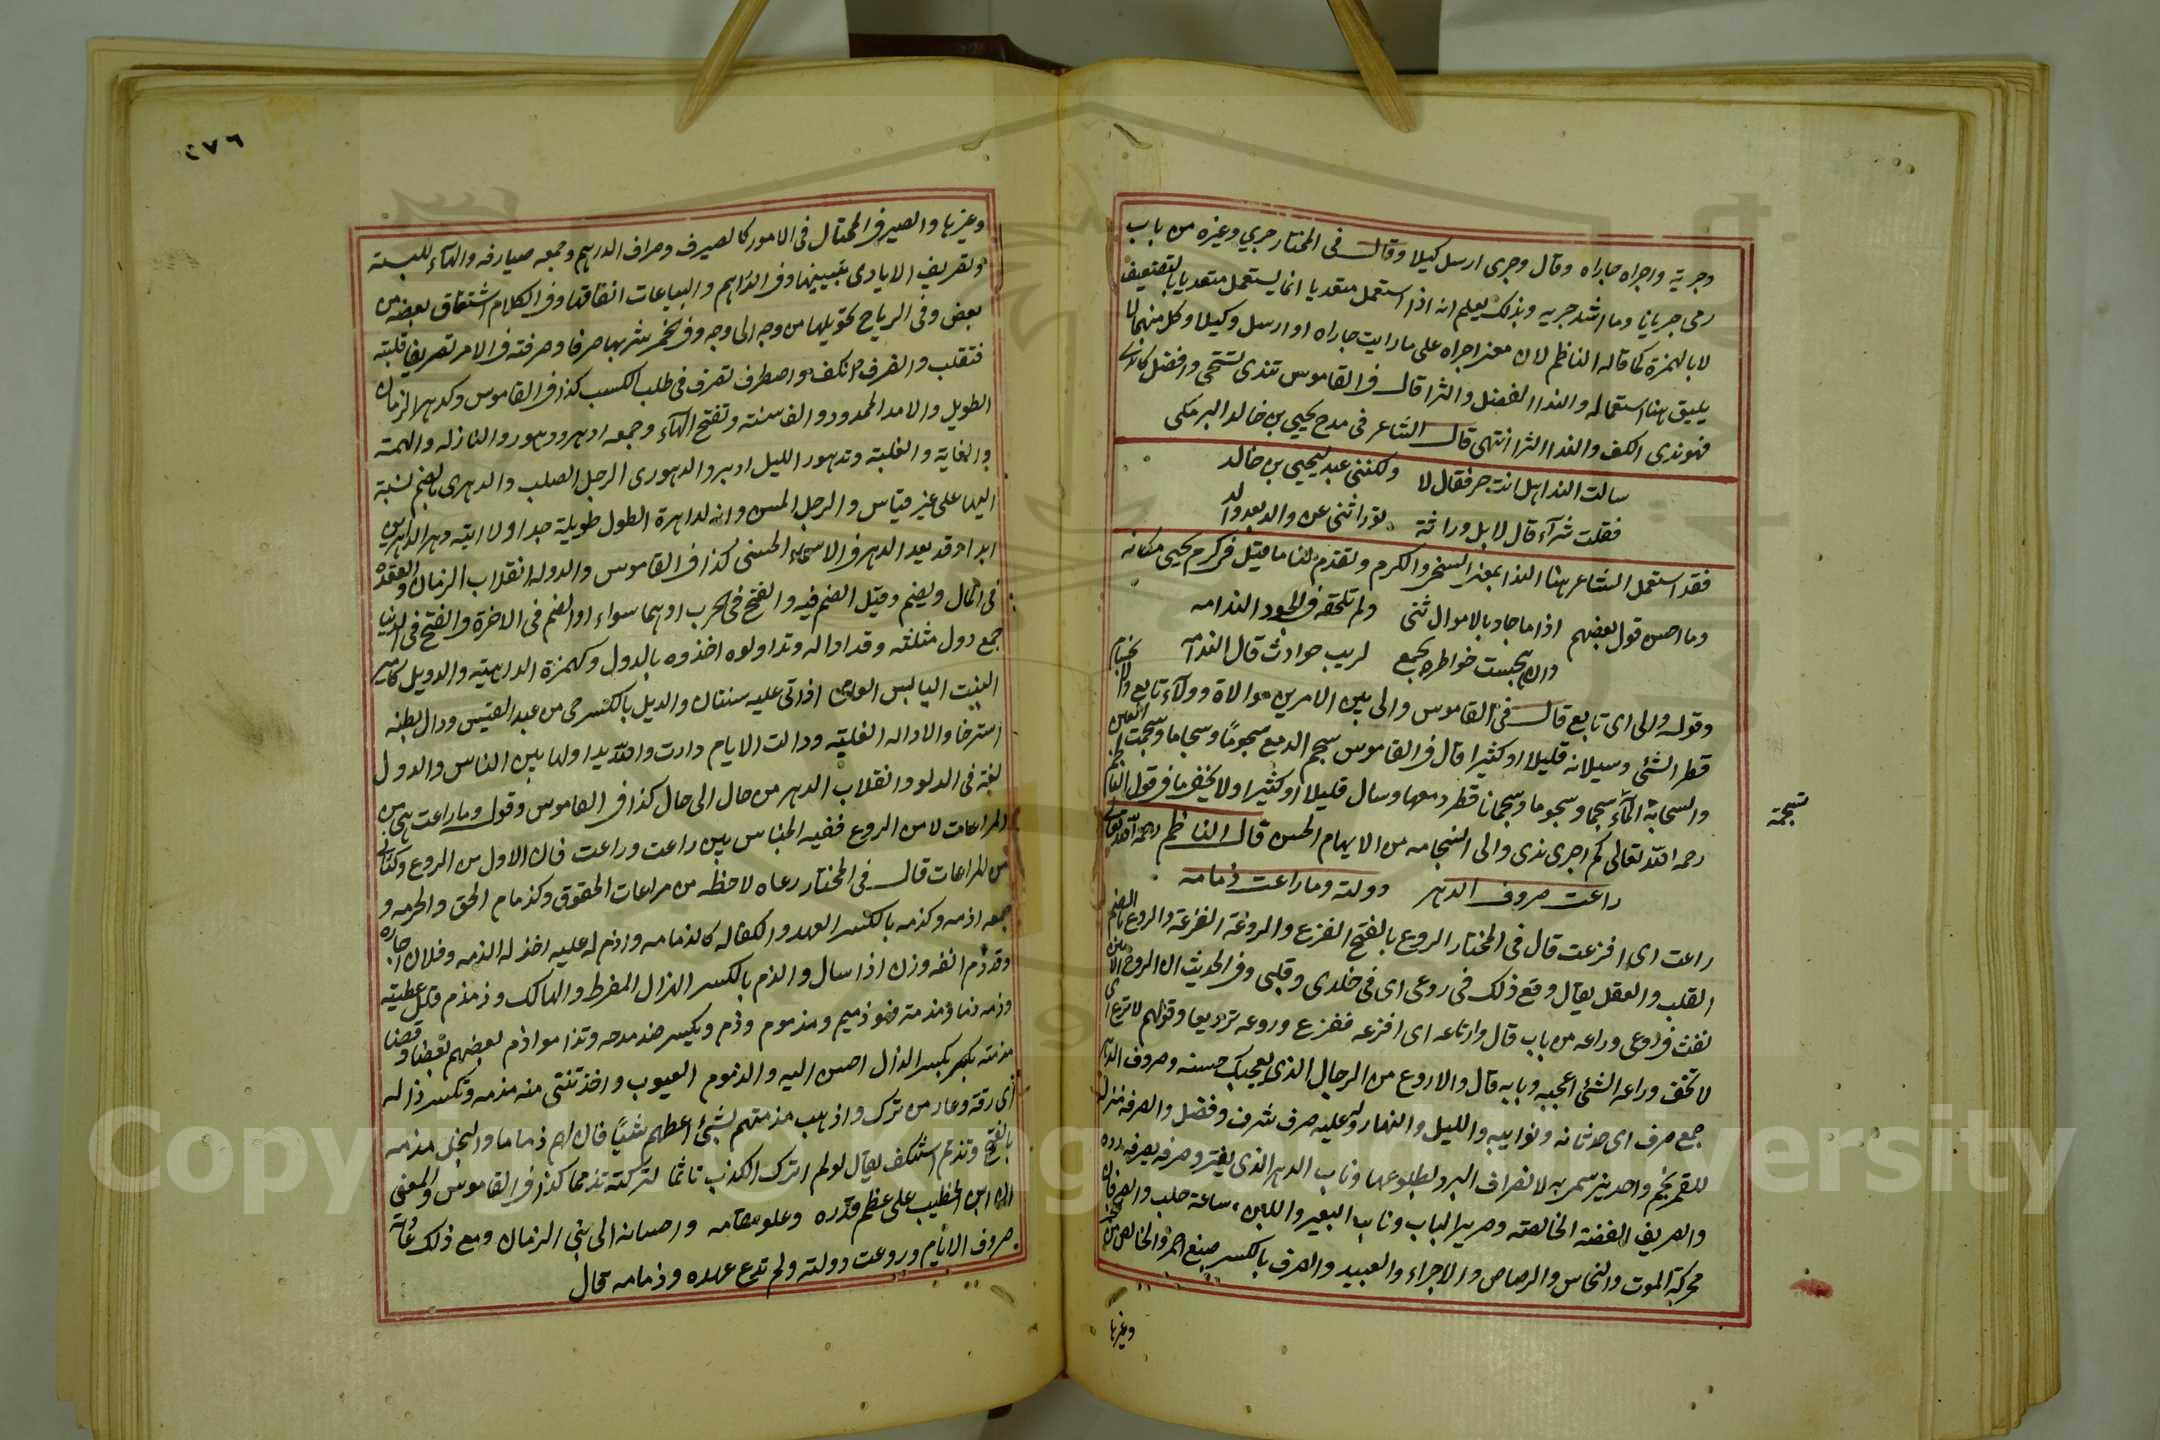 وجرية واجراه جاراه وقال وجرى ارسل كيلا وقال في المختار جرى وغيره من باب
رمى جريانا وما اشد جريه وبذلك يعلم انه اذا استعمل متعديا انما يستعمل متعديا بالتضعيف
لا بالهمزة كما قاله الناظم لان معنى اجراه على ما رايت جاراه او ارسل وكيلا وكل منهما لا
يليق هنا استعماله والندا الفضل والثرا قال في القاموس تندى تسخى وافضل كاندى
فهو ندى الكف والندا الثرا انتهى قال الشاعر في مدح يحيى بن خالد البرمكى
سالت الندا هل انت حر فقال لا ولكننى عبد ليحيى بن خالد
فقلت شرآء قال لا بل وراثة توراثنى عن والد بعد والد
فقد استعمل الشاعر هنا الندا بمعنى السخى والكرم وتقدم لنا ما قيل فى كرم يحيى مكانه
وما احسن قول بعضهم اذا ما جاد بالاموال ثنى ولم تلحقه فى الجود الندامه
وان هجست خواطره بجمع لريب حوادث قال الندامه
وقوله والى اى تابع قال فى القاموس والى بين الامرين موالاة وولآء تابع
قطر الشئ وسيلانه قليلا او كثيرا قال فى القاموس سجم الدمع سجوما وسجاما وسجمت العين
والسحابة المآء سجما وسجوما وسجمانا قطر دمعها وسال قليلا او كثيرا ولا يخفى ما فى قول الناظم
رحمه الله تعالى كم اجرى ندى والى انسجامه من الايهام الحسن قال الناظم رحمه الله تعالى
راعت صروف الدهر دولته وما راعت ذمامه
راعت اى افزعت قال فى المختار الروع بالفتح الفزع والروعة الفزعة والروع بالضم
القلب والعقل يقال وقع ذلك فى روعى اى فى خلدى وقلبى وفى الحديث ان الروح الامين
نفث فى روعى وراعه من باب قال وارتاعه اى افزعه ففزع وروعه ترويعا وقولهم لا ترع اى
لا تخف وراعه الشئ اعجبه وبابه قال والاروع من الرجال الذى يعجبك حسنه وصروف الدهر
جمع صرف اى حدثانه ونوايبه والليل والنهار وله عليه صرف شرف وفضل والصرفه منزلة
للقمر نجم واحد نير سمى به لانصراف البرد لطلوعها وناب الدهر الذى يفتر وصرفه يصرفه رده
والصريف الفضة الخالصة وصرير الباب وناب البعير واللبن ساعة حلب والصرفان
محركة الموت والنحاس والرصاص والاجراء والعبيد والصرف بالكسر صبغ احمر والخالص من الخمر
سجمة
وغيرها
٢٧٦
وغيرها والصيرفى المحتال فى الامور كالصيرف وصراف الدرهم وجمعه صيارفه والهآء للنسبة
وتصريف الايادى تبيينها وفى الدراهم والبياعات انفاقها وفى الكلام اشتقاق بعضه من
بعض وفى الرياح تحويلها من وجه الى وجه وفى الخمر شربها صرفا وصرفته فى الامر تصريفا قلبته
فتقلب وانصرف انكف واصطرف تصرف فى طلب الكسب كذا فى القاموس وكدهر الزمان
الطويل والامد الممدود والف سنة وتفتح الهآء وجمعه ادهر ودهور والنازلة والهمة
والغاية والغلبة وتدهور الليل ادبر والدهورى الرجل الصلب والدهرى بالضم نسبة
اليها على غير قياس والرجل المسن وانه لداهرة الطول طويلة جدا ولا اتيه دهر الداهرين
ابدا وقد يعد الدهر فى الاسماء الحسنى كذا فى القاموس والدوله انقلاب الزمان والعقبة
فى المال ويضم وقيل الضم فيه والفتح فى الحرب او هما سواء او الضم فى الاخرة والفتح فى الدنيا
جمع دول مثلثه وقد اداله وتداولوه اخذوه بالدول وكهمزة الداهية والدويل كامير
النبت اليابس العامى اذ اتى عليه سنتان والديل بالكسر حى من عبد القيس ودال بطنه
استرخا والاداله الغلبة ودالت الايام دارت والله يداولها بين الناس والدول
لغة فى الدلو وانقلاب الدهر من حال الى حال كذا فى القاموس وقوله وما راعت هى من
المراعات لا من الروع ففيه الجناس بين راعت وراعت فان الاول من الروع والثانى
من المراعات قال فى المختار رعاه لاحظه من مراعات الحقوق وكذمام الحق والحرمه و
جمعه اذمه وكذمه بالكسر العهد والكفاله كالذمامه واذم له عليه اخذ له الذمه وفلانا اجاره
وقد ذم انفه وذن اذا سال والذم بالكسر الهزال المفرط والهالك وذمذم قلل عطيته
وذمه ذما ومذمة فهو ذميم ومذموم وذم ويكسر ضد مدحه وتذاموا ذم بعضهم بعضا وقضا
مذمته بكسر الذال احسن اليه والذموم العيوب واخذتنى منه مذمه وتكسر ذاله
اى رقة وعار من ترك واذهب مذمتهم بشئ اعطهم شيئا فان لهم ذماما والبخل مذمه
بالفتح وتذمم استنكف يقال لو لم اترك الكذب تاثما لتركته تذمما كذا فى القاموس والمعنى
ان ابن الخطيب على عظم قدره وعلو مقامه واحسانه الى بنى الزمان ومع ذلك خانته
صروف الايام وروعت دولته ولم ترع عهده وذمامه قال
Copyright © King Saud University